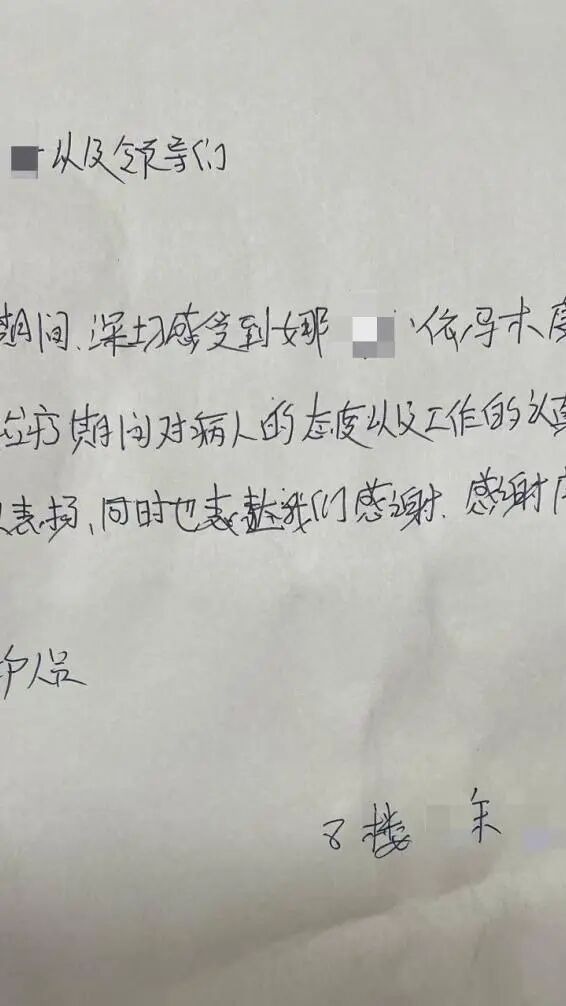 以及领导们
期间、深切感受到娜 、依玛木
治疗期间对病人的态度以及工作的认真
表扬、同时也表达我们感谢、感谢
护人员
8楼 朱